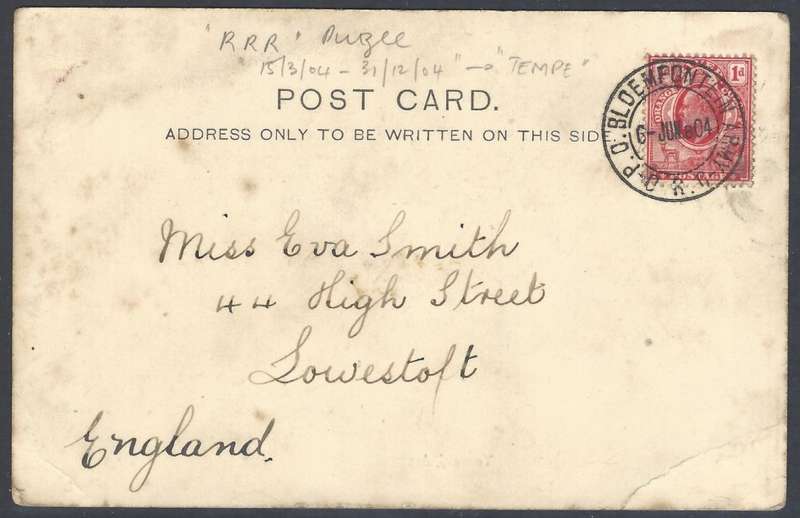 "RRR" Putzel
15/3/04 - 31/12/04" → "TEMPE"
POST CARD.
ADDRESS ONLY TO BE WRITTEN ON THIS SIDE
1d
ORANGE
POSTAGE
BLOEMFONTEIN ARMY P.O. O.R.
6-JUN 04
Miss Eva Smith
44 High Street
Lowestoft
England.